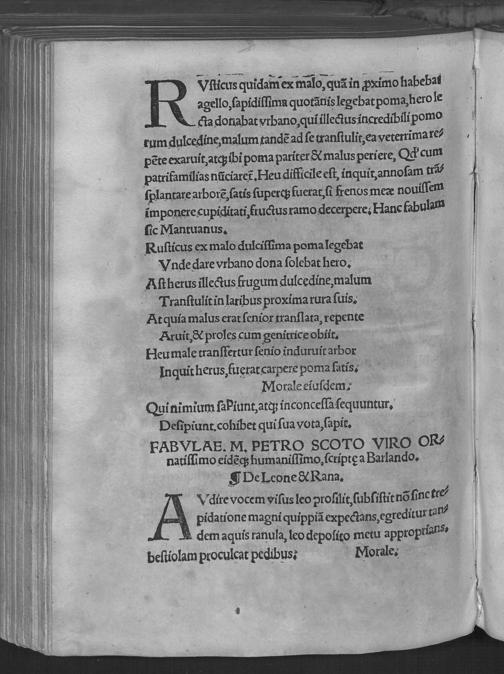 RVsticus quidam ex malo, quã in ꝓximo habebat
agello, sapidissima quotãnis legebat poma, hero le
cta donabat vrbano, qui illectus incredibili pomo
rum dulcedine, malum tandẽ ad se transtulit, ea veterrima re⸗
pẽte exaruit, atqꝫ ibi poma pariter & malus periere, Qđ cum
patrifamilias nũciarẽt, Heu difficile est, inquit, annosam trã⸗
splantare arborẽ, satis superqꝫ fuerat, si frenos meæ nouissem
imponere cupiditati, fructus ramo decerpere. Hanc fabulam
sic Mantuanus.
Rusticus ex malo dulcissima poma legebat
Vnde dare vrbano dona solebat hero.
Ast herus illectus frugum dulcedine, malum
Transtulit in laribus proxima rura suis.
At quia malus erat senior translata, repente
Aruit, & proles cum genitrice obiit.
Heu male transfertur senio induruit arbor
Inquit herus, fuerat carpere poma satis.
Morale eiusdem.
Qui nimium saPiunt, atqꝫ inconcessa sequuntur,
Desipiunt, cohibet qui sua vota, sapit.
FABVLAE. M. PETRO SCOTO VIRO OR⸗
natissimo eidẽqꝫ humanissimo, scriptę a Barlando.
¶ De Leone & Rana.
AVdire vocem visus leo prosilit, subsistit nõ sine tre⸗
pidatione magni quippiã expectans, egreditur tan⸗
dem aquis ranula, leo deposito metu approprians,
bestiolam proculcat pedibus. Morale.